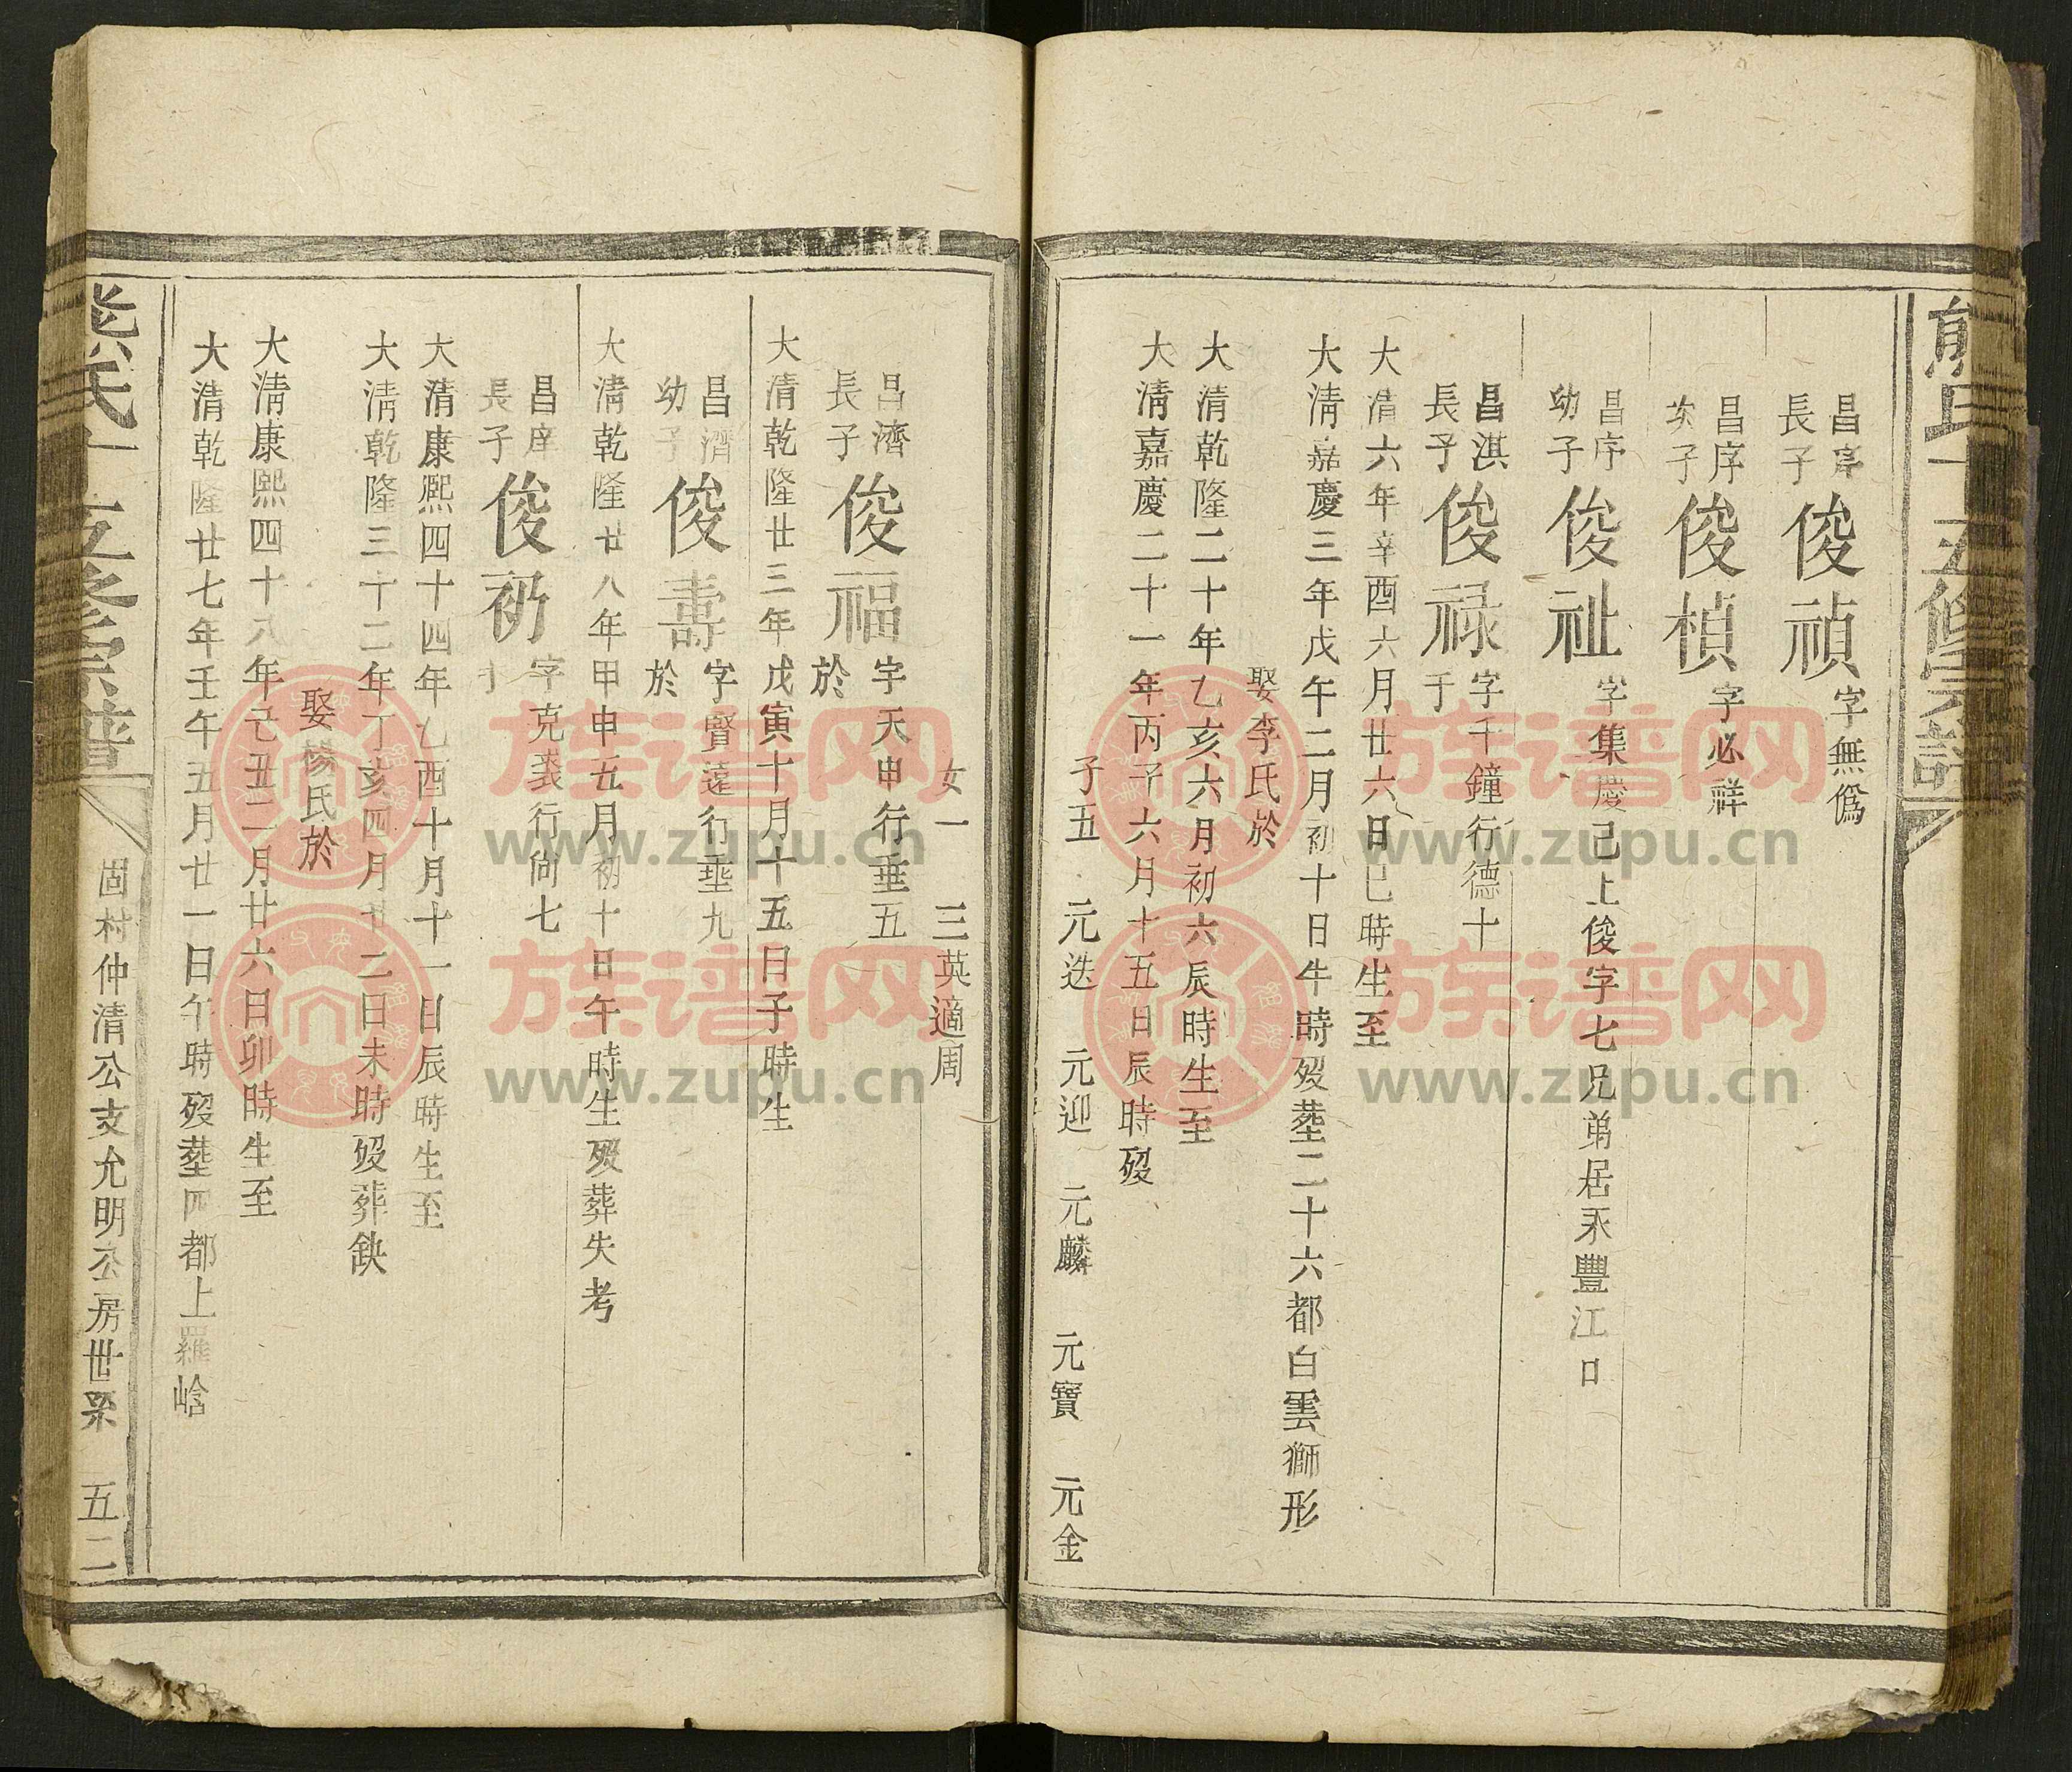 熊氏十五修宗譜
昌序長子俊禎字無僞
昌序次子俊楨字必祥
昌序幼子俊祉字集慶己上俊字七兄弟居永豐江口
昌淇長子俊禄字千鐘行德十于
大清六年辛酉六月廿六日巳時生至
大清嘉慶三年戊午二月初十日午時歿塟二十六都白雲獅形
娶李氏於
大清乾隆二十年乙亥六月初六辰時生至
大清嘉慶二十一年丙子六月十五日辰時歿
子五 元迭 元迎 元麟 元寶 元金
女一 三英適周
昌濟長子俊福字天申行垂五於
大清乾隆廿三年戊寅十月十五日子時生
昌濟幼子俊壽字賢遠行垂九於
大清乾隆廿八年甲申五月初十日午時生歿葬失考
昌庠長子俊礽字克裘行尚七于
大清康熙四十四年乙酉十月十一日辰時生至
大清乾隆三十二年丁亥四月廿二日未時歿葬缺
娶楊氏於
大清康熙四十八年己丑二月廿六日卯時生至
大清乾隆廿七年壬午五月廿一日午時歿塟四都上羅峆
熊氏十五修宗譜
固村仲清公支允明公房世系 五二
族谱网
www.zupu.cn
族谱网
www.zupu.cn
族谱网
www.zupu.cn
族谱网
www.zupu.cn